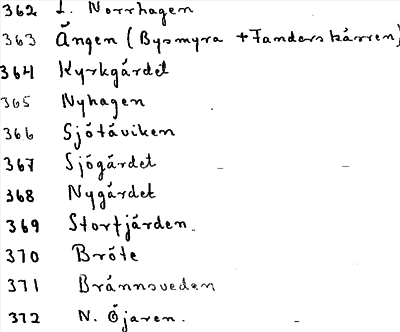 362 L. Norrhagen
363 Ängen (Bysmyra + Fanderskärren)
364 Kyrkgärdet
365 Nyhagen
366 Sjötäviken
367 Sjögärdet
368 Nygärdet
369 Storfjärden.
370 Bröte
371 Brännsveden
372 N. Öjaren.